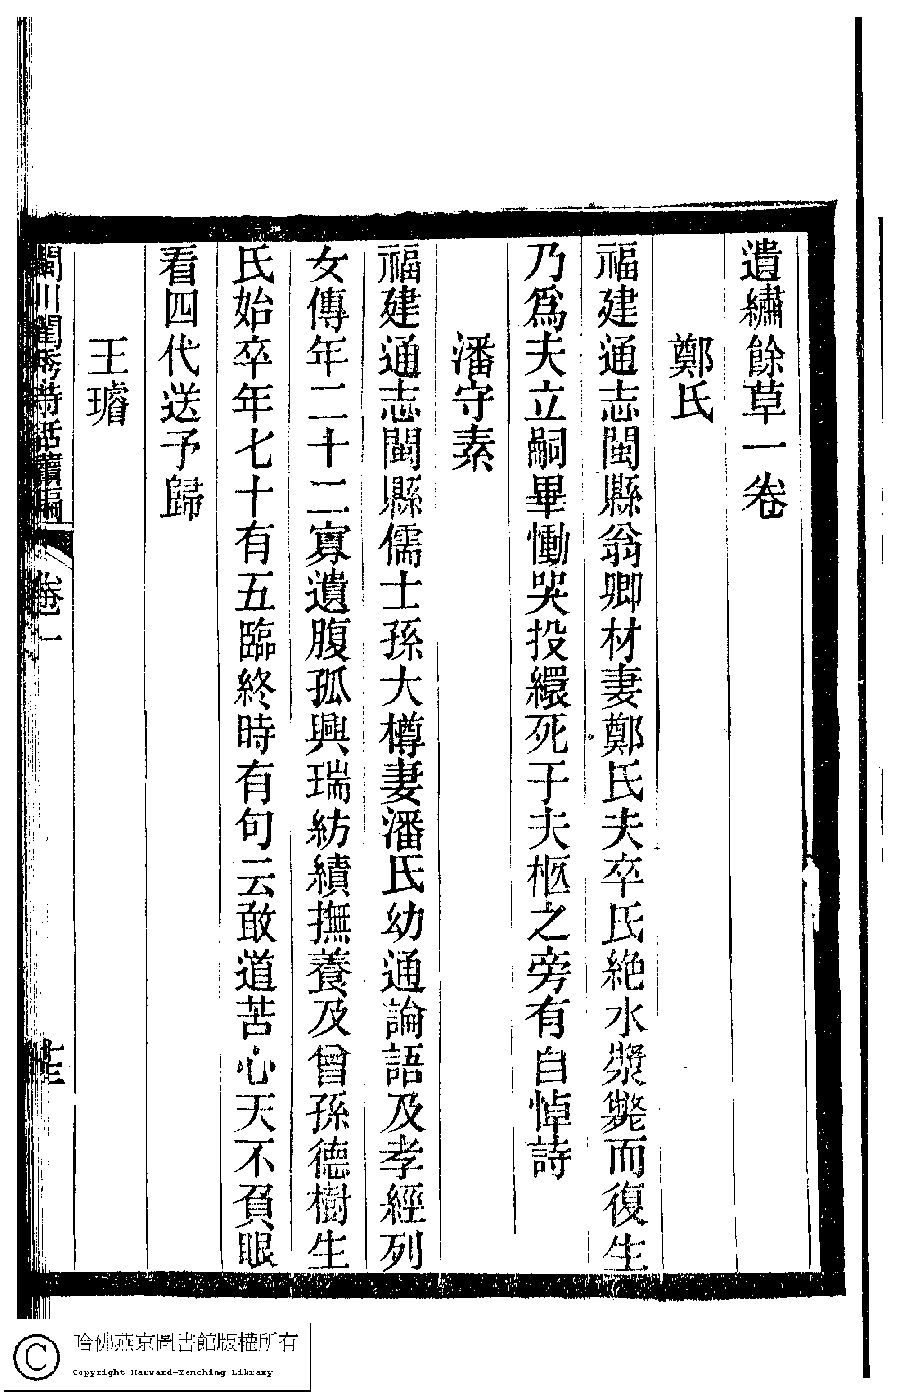 遺繡餘草一卷
鄭氏
福建通志閩縣翁卿材妻鄭氏夫卒氏絶水漿斃而復生
乃爲夫立嗣畢慟哭投繯死于夫柩之旁有自悼詩
潘守素
福建通志閩縣儒士孫大樽妻潘氏幼通論語及孝經列
女傳年二十二寡遺腹孤興瑞紡績撫養及曾孫德樹生
氏始卒年七十有五臨終時有句云敢道苦心天不負眼
看四代送予歸
王璿
閩川閨秀詩話續編
卷一
哈佛燕京圖書館版權所有
Copyright Harvard-Yenching Library